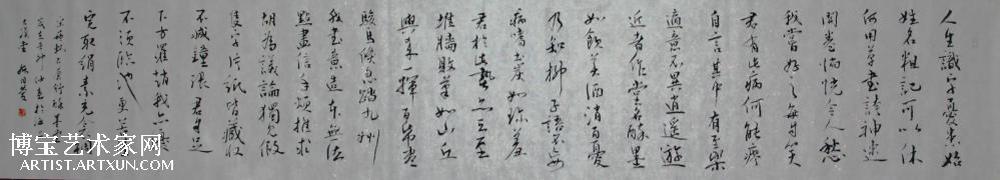 人生識字憂患始
姓名粗記可以休
何用草書誇神速
開卷惝怳令人愁
我嘗好之每自笑
君有此病何能瘳
自言其中有至樂
適意不異逍遙遊
近者作堂名醉墨
如飲美酒消百憂
乃知柳子語不妄
病嗜土炭如珍羞
君於此藝亦云至
堆牆敗筆如山丘
興來一揮百紙盡
駿馬倏忽踏九州
我書意造本無法
點畫信手煩推求
胡為議論獨見假
隻字片紙皆藏收
不減鐘張君自足
下方羅趙我亦
不須臨池更苦
完取絹素充衾裯
博宝艺术家网
ARTIST.ARTXUN.COM